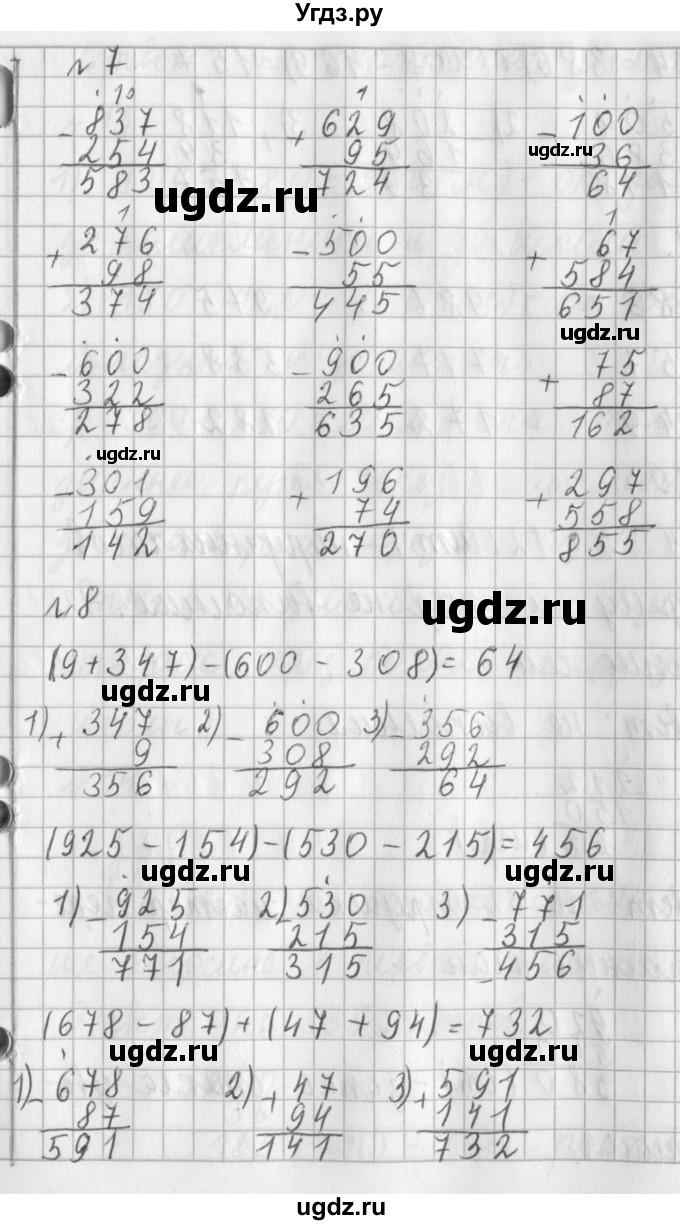 Угдз.ру
№ 7
· 10 1 · ·
- 837 + 629 - 100
254 95 36
583 724 64
ugdz.ru
ugdz.ru
1 · · 1
+ 276 - 500 + 67
98 55 584
374 445 651
ugdz.ru
· · · ·
- 600 - 900 + 75
322 265 87
278 635 162
ugdz.ru
- 301 + 196 + 297
159 74 558
142 270 855
№ 8
ugdz.ru
(9 + 347) - (600 - 308) = 64
ugdz.ru
1) + 347 2) - 600 3) - 356
9 308 292
356 292 64
(925 - 154) - (530 - 215) = 456
ugdz.ru ugdz.ru
1) - 925 2) - 530 3) - 771
154 215 315
771 315 456
(678 - 87) + (47 + 94) = 732
ugdz.ru ugdz.ru
1) - 678 2) + 47 3) + 591
87 94 141
591 141 732
ugdz.ru